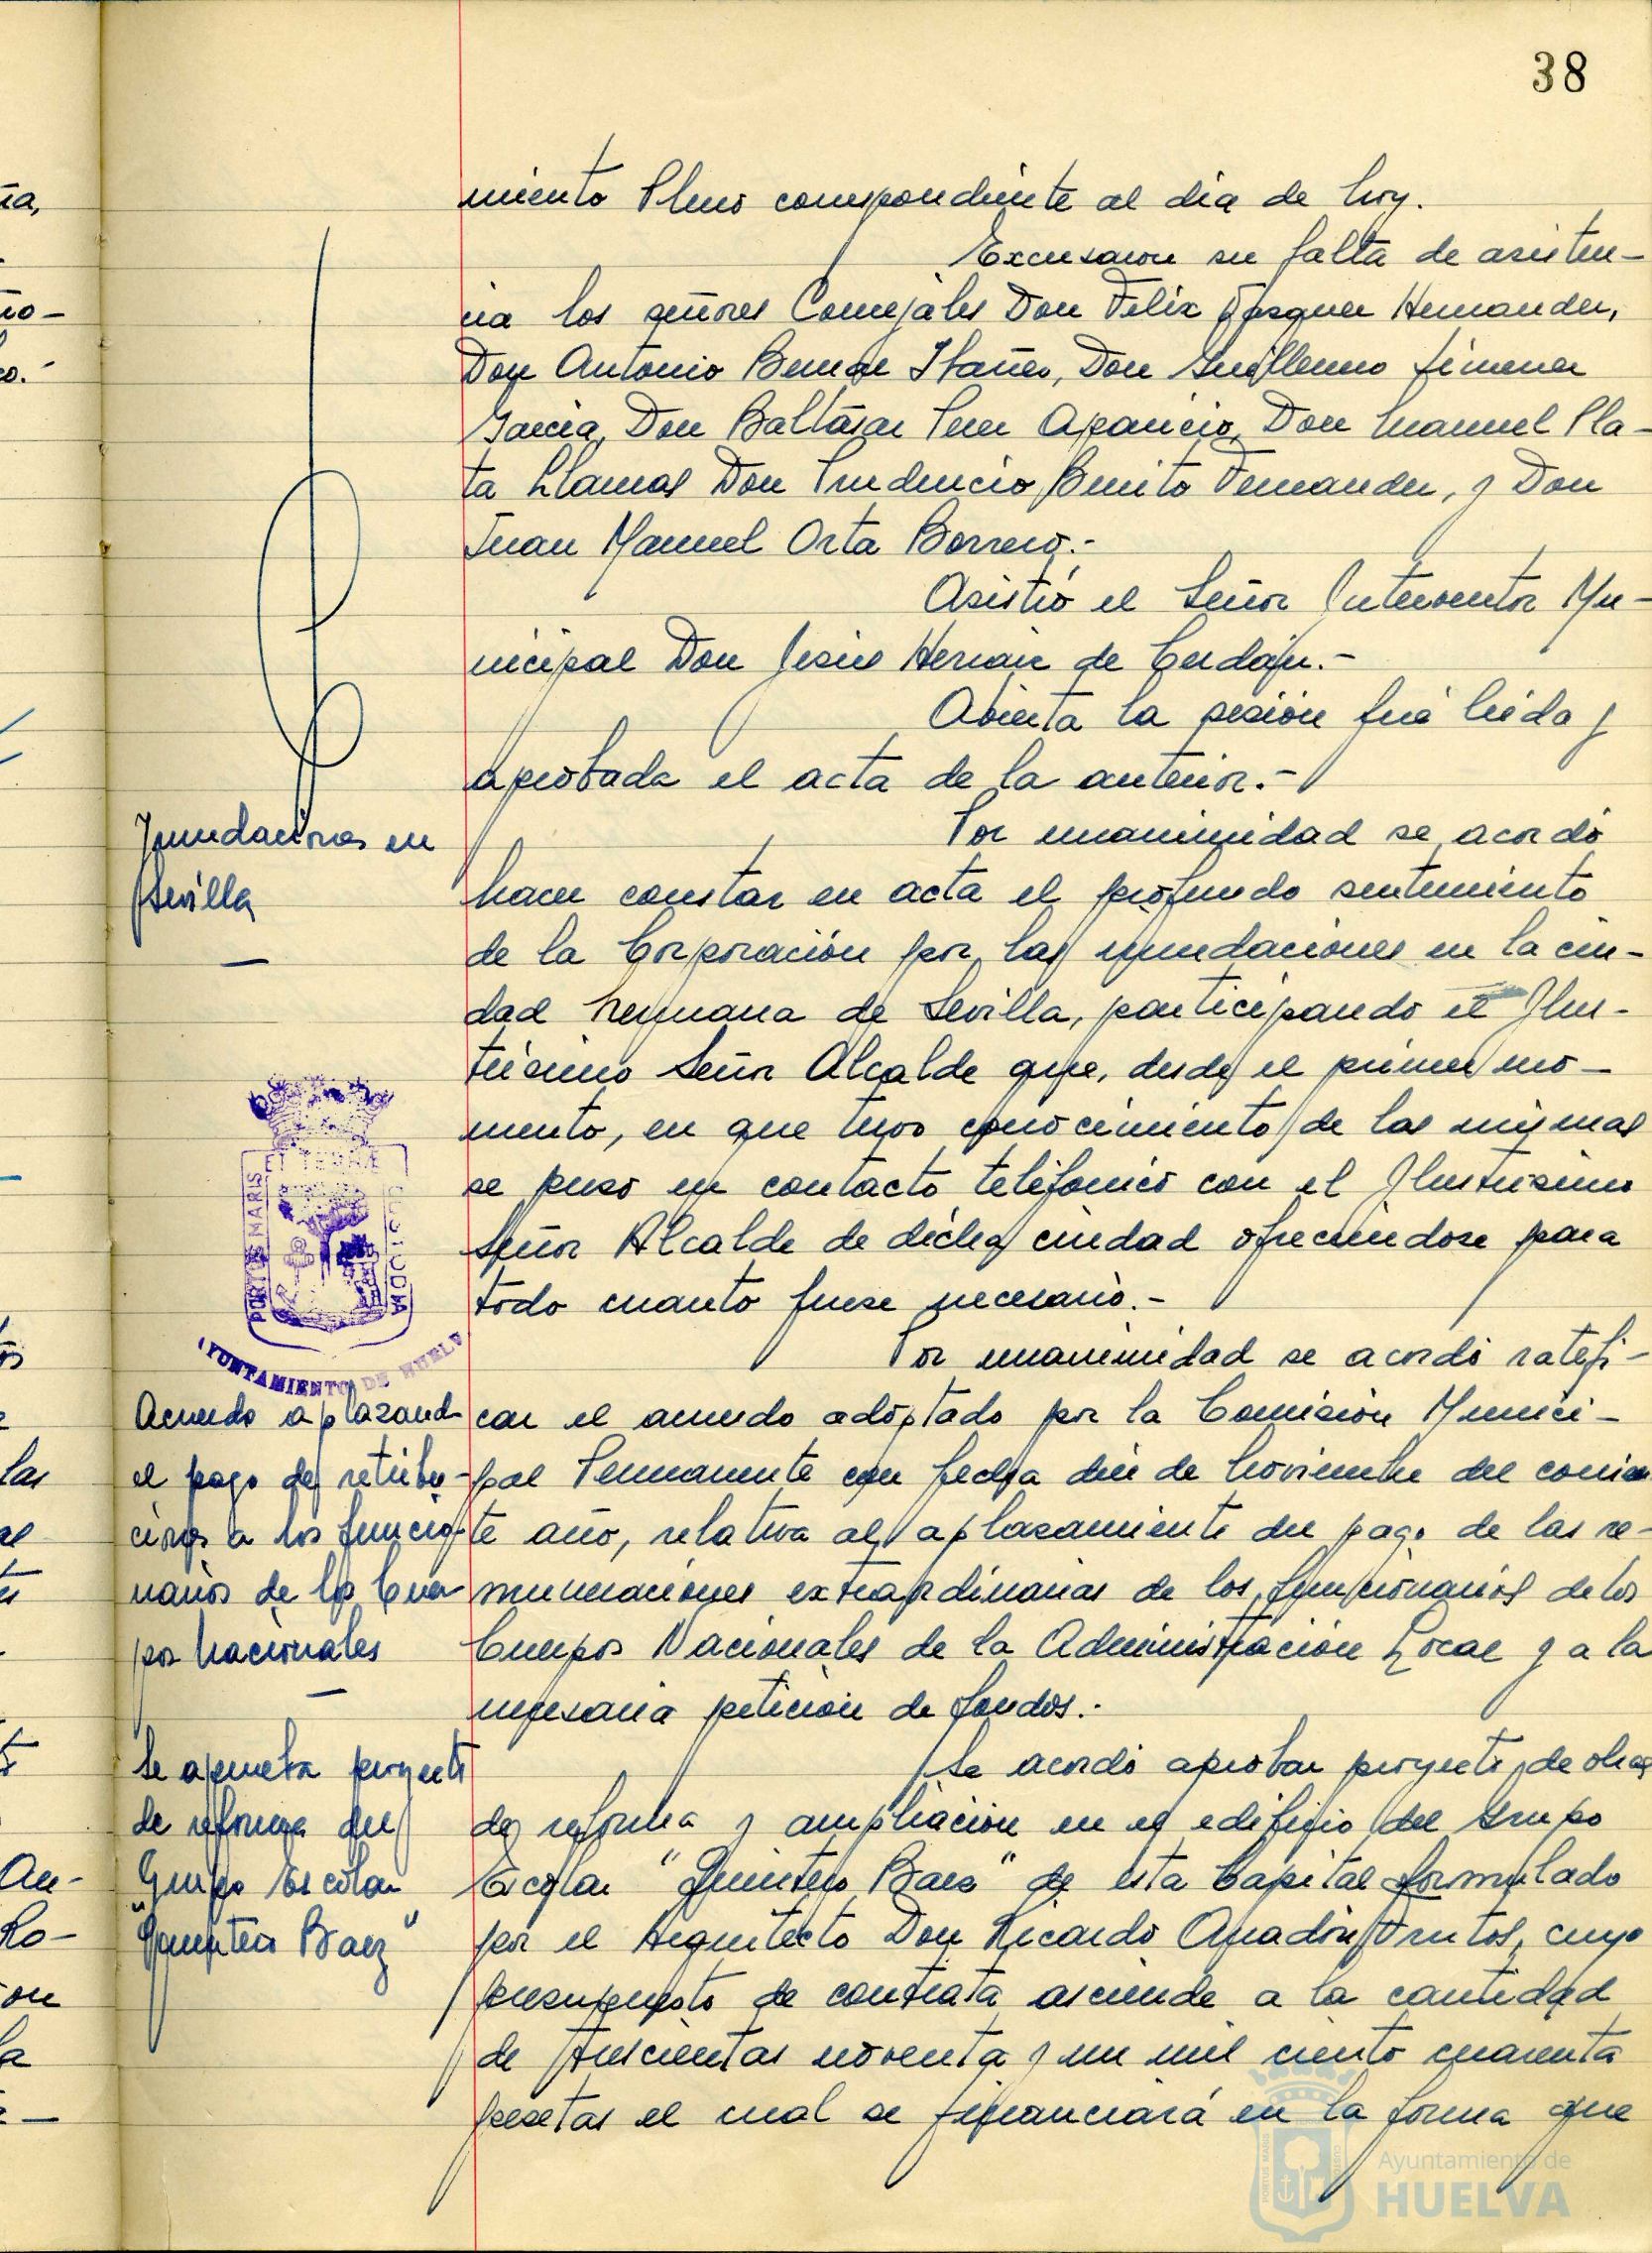 38
miento Pleno correspondiente al día de hoy.
Excusaron su falta de asisten-
cia los señores Concejales Don Felix Vazquez Hernandez,
Don Antonio Bernal Ibañez, Don Guillermo Jimenez
Garcia, Don Baltasar Perez Aparicio, Don Manuel Pla-
ta Llamas Don Prudencio Benito Fernandez, y Don
Juan Manuel Orta Borrero.-
Asistió el Señor Interventor Mu-
nicipal Don Jesús Hernaiz de Cerdán.-
Abierta la sesión fué leida y
aprobada el acta de la anterior.-
Inundaciones en
Sevilla
Por unanimidad se acordó
hacer constar en acta el profundo sentimiento
de la Corporación por las inundaciones en la ciu-
dad hermana de Sevilla, participando el Ilus-
trisimo Señor Alcalde que, desde el primer mo-
mento, en que tuvo conocimiento de las mismas
se puso en contacto telefonico con el Ilustrisimo
Señor Alcalde de dicha ciudad ofreciendose para
todo cuanto fuese necesario.-
PORTUS MARIS
ET TERRAE
CUSTODIA
AYUNTAMIENTO DE HUELV
Acuerdo aplazand
el pago de retribu-
ciones a los funcio-
narios de los Cuer
pos Nacionales
Por unanimidad se acordó ratifi-
car el acuerdo adoptado por la Comisión Munici-
pal Permanente con fecha diez de Noviembre del corrien
te año, relativa al aplazamiento del pago de las re-
muneraciones extraordinarias de los funcionarios de los
Cuerpos Nacionales de la Administración Local y a la
necesaria petición de fondos.-
Se aprueba proyecto
de reforma del
Grupo Escolar
"Quintero Baez"
Se acordó aprobar proyecto de obras
de reforma y ampliación en el edificio del Grupo
Escolar "Quintero Baez" de esta Capital formulado
por el Arquitecto Don Ricardo Anadón Frutos, cuyo
presupuesto de contrata asciende a la cantidad
de trescientas noventa y un mil ciento cuarenta
pesetas el cual se financiará en la forma que
Ayuntamiento de
HUELVA